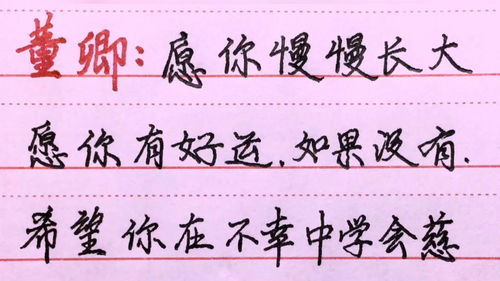 董卿:愿你慢慢长大
愿你有好运.如果没有.
希望你在不幸中学会慈